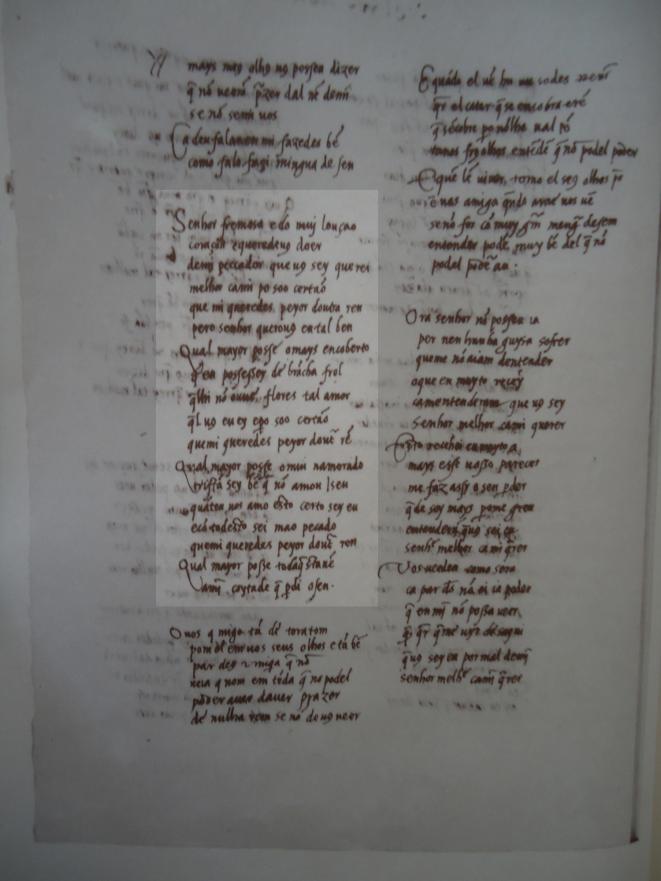 mays meg olho nȝ possen dizer
q̃ nõ ueem p̃zer dal nẽ demi
se nõ semi uos
Ca deu falamen mi fazedes bẽ
como falo fazi mingua de sen
Senhor fremosa e do muj louçao
coraçon e queredeuȝ doer
demj peccador que uȝ sey querer
melhor cami po soo certão
que mi queredes peyor doutra ren
pero senhor querouȝ en tal ben
Qual mayor posse o mays encoberto
q̃ eu posse sey de brãcha frol
q̃lhi nõ ouue flores tal amor
q̃l uȝ eu ey e po soo certão
quemi queredes peyor dout̃ rẽ
Qual mayor posse o mui namorado
tristã sey bẽ q̃ nõ amou Iseu
quãten uos amo esto certo sey eu
e cõ todesto sei mao pecado
quemi queredes peyor dout̃ ren
Qual mayor posse todaq̃st
amĩ coytade q̃ p̃di o sen.
O uos q migo tã dẽ toratom
pom ẽl en uos seus olhos e tã bẽ
par deȝ amiga q̃ nõ
ueia q nom em tẽda q̃ no podel
poder auer dauer prazer
de nulha ren se nõ deuȝ ueer
E quãdo el uẽ hu uos sodes
q̃r el catar q̃ se encobra
q̃ sẽcobre po nõlhe ual
seȝ olhos entẽdẽ q̃ nõ podel poder
E quẽ bẽ uir como el seȝ olhos põ
en uos amiga q̃ndo ante uos uẽ
se nõ for cõ muy grã mengua desem
entender pode muy bẽ del q̃ nõ
podel poder
Ora senhor nõ possen ia
per nen hunha guysa sofrer
queme nõ aiam dentender
o que eu muyto receey
camentenderam que uȝ sey
senhor melhor cami querer
Esto receey eu muyto
mays esse uosso parecer
me faz assy o sen perder
q̃ des oy mays
entenderã q̃uȝ sey eu
senhor melhor cami q̃rer
Uos ueedeu como sera
ca par dẽs nõ ei ia poder
q̃ en mĩ nõ possa ueer
q̃ q̃r q̃me uyr desaqui
q̃uȝ sey eu por mal demĩ
senhor melhor cami q̃rer